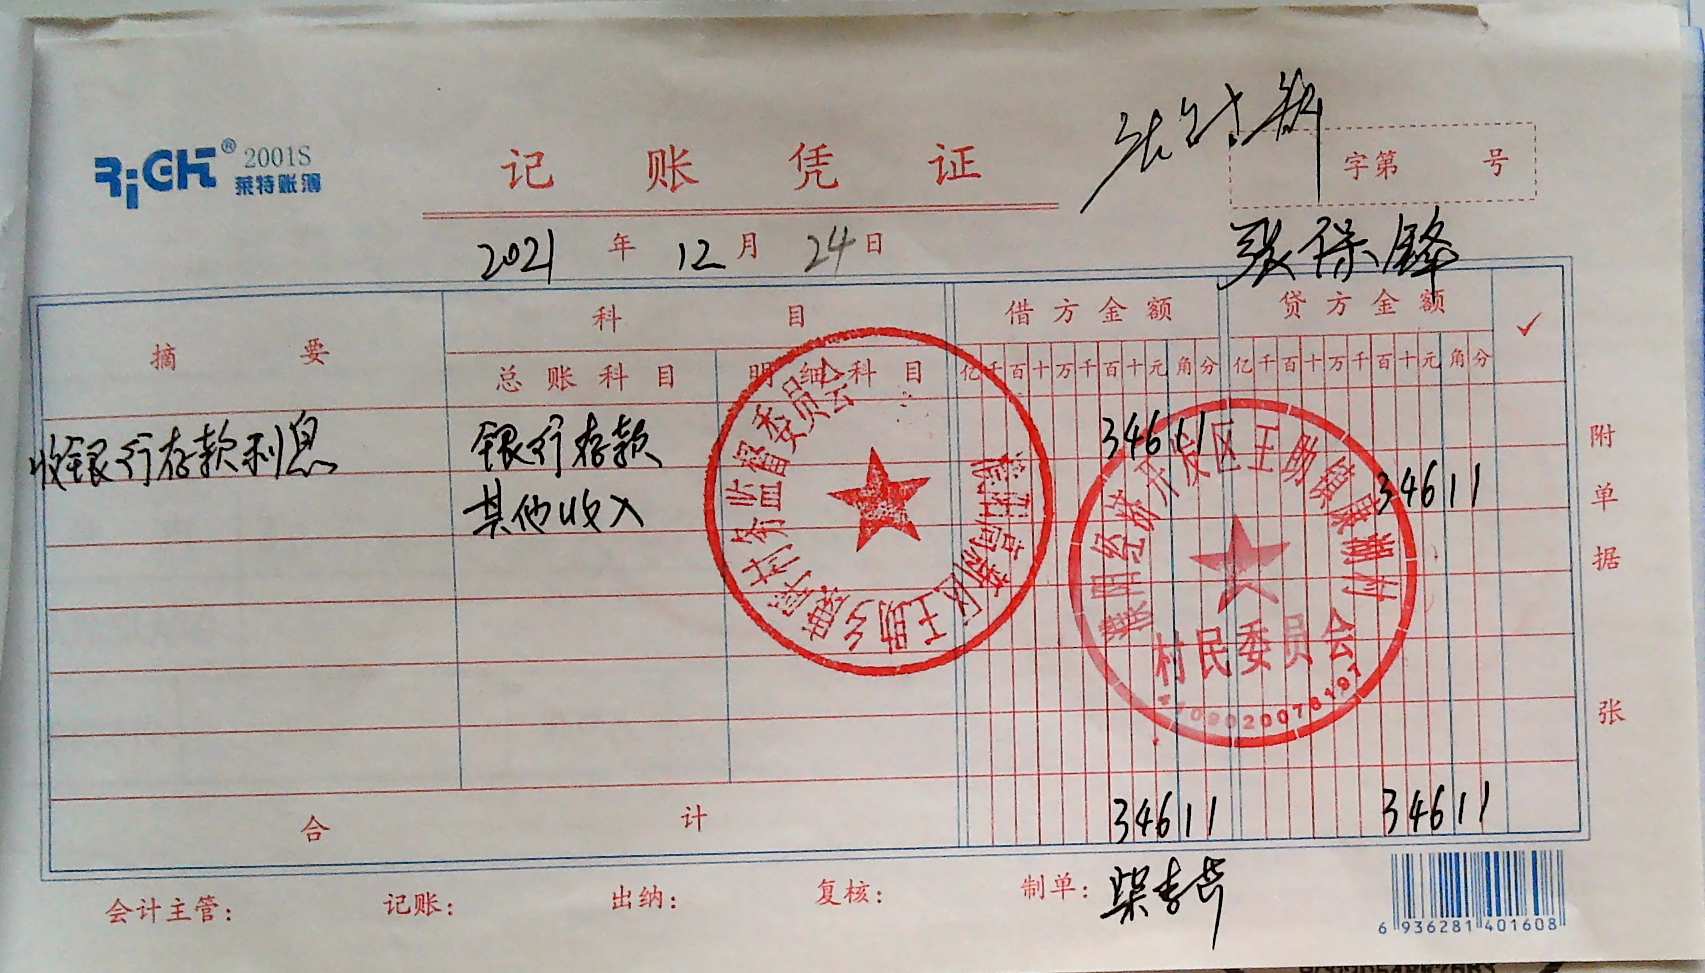 RiGHT® 2001S
莱特账簿
记账凭证
字第 号
张保锋
2021年12月24日
摘要 科目 借方金额 贷方金额 ✓
总账科目 明细科目 亿千百十万千百十元角分 亿千百十万千百十元角分
收银行存款利息 银行存款 34611
其他收入 34611
附单据 张
濮阳高新区王助乡 村务监督委员会
濮阳经济开发区王助镇 村
村民委员会
合计 34611 34611
会计主管: 记账: 出纳: 复核: 制单:
6 936281 401608